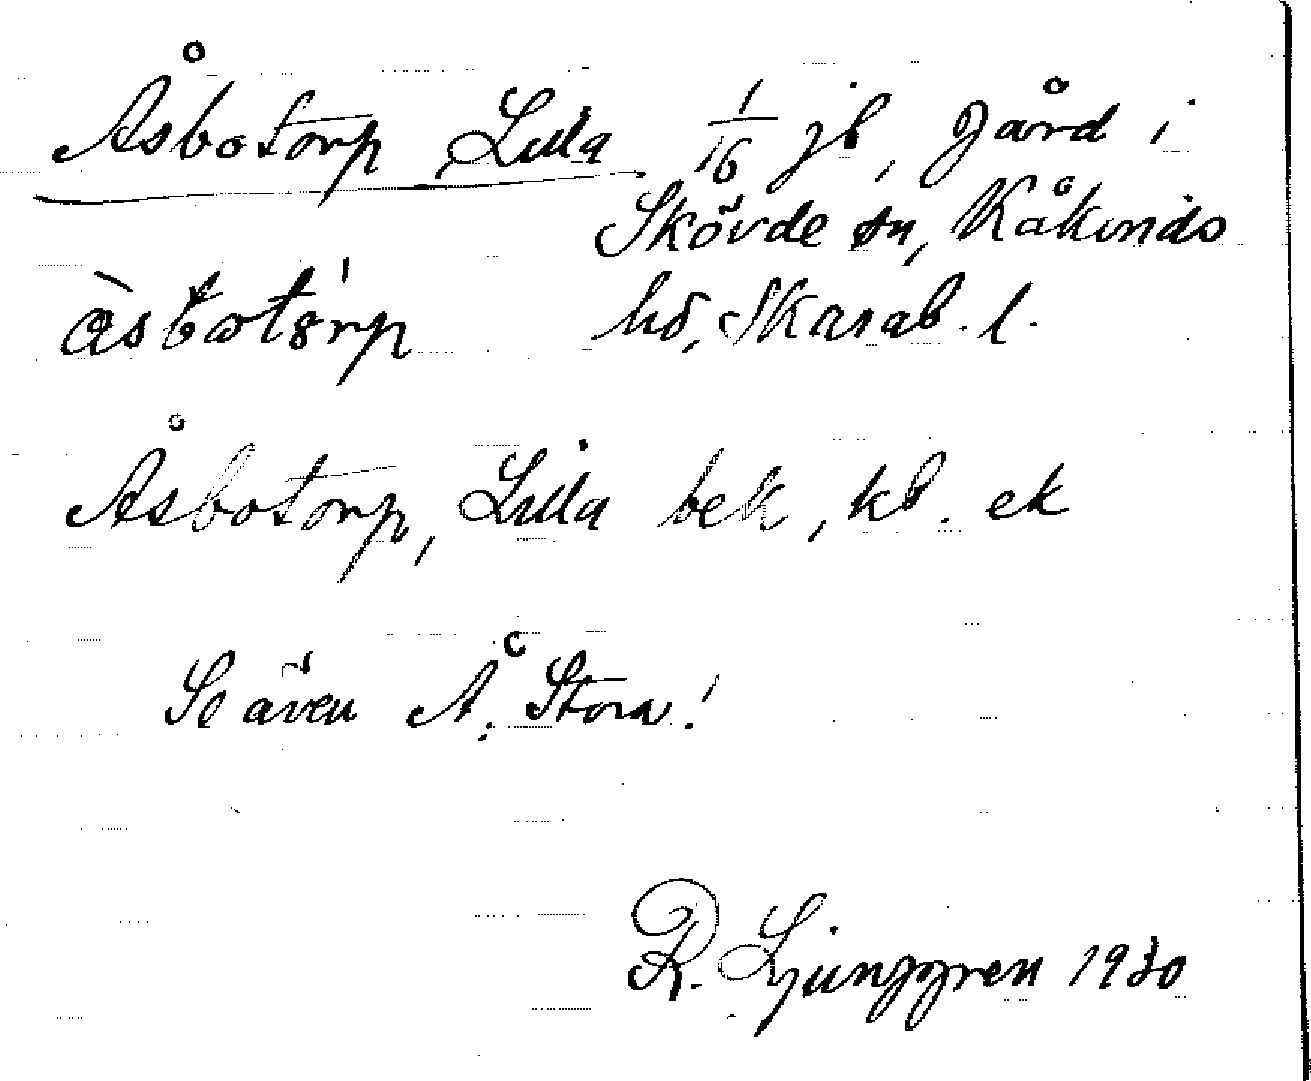 Åsbotorp, Lilla 1/16 jb, gård i
Skövde sn, Kåkinds
hd, Skarab. l.
àsbotórp
Åsbotorp, Lilla bek, kb. ek
Se även Å. Stora!
R. Ljunggren 1930